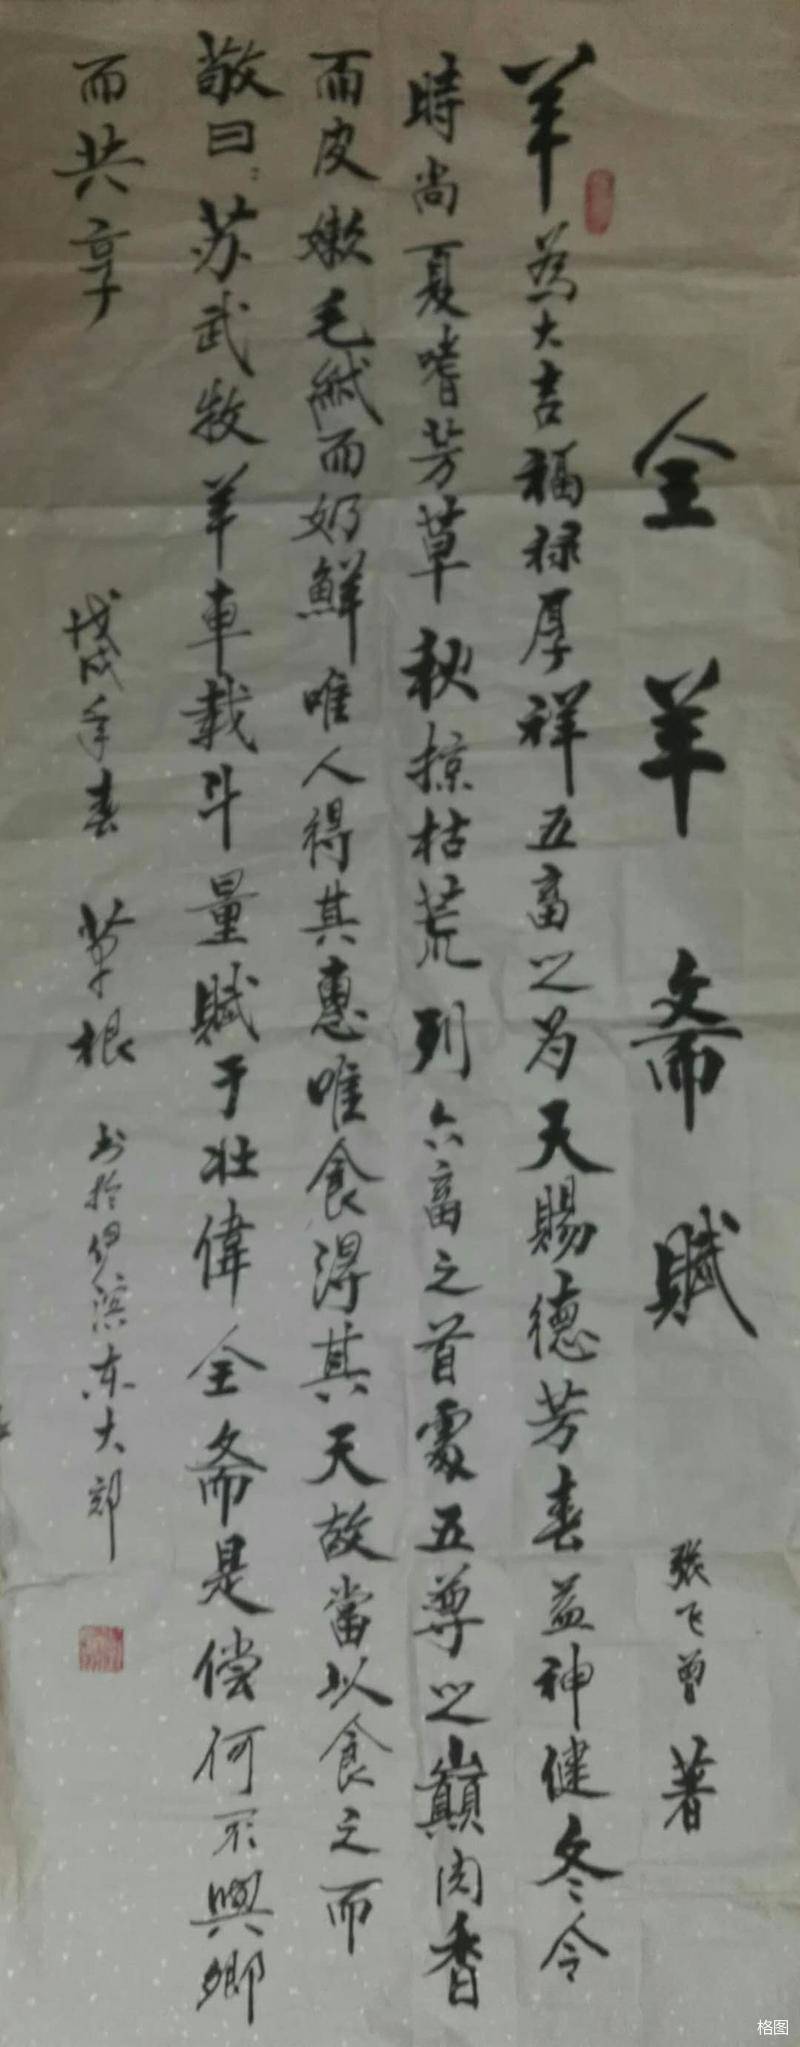 全羊斋賦
張飞曾著
羊為大吉福禄厚祥五畜之为天賜德芳春益神健冬令
時尚夏嗜芳草秋掠枯荒列六畜之首處五尊之巔肉香
而皮嫩毛絨而奶鮮唯人得其惠唯食得其天故當以食之而
敬曰:苏武牧羊車載斗量賦于壮偉全斋是偿何不與鄉
而共享
戊戌年春 草根 书於伊滨东大郊
格图